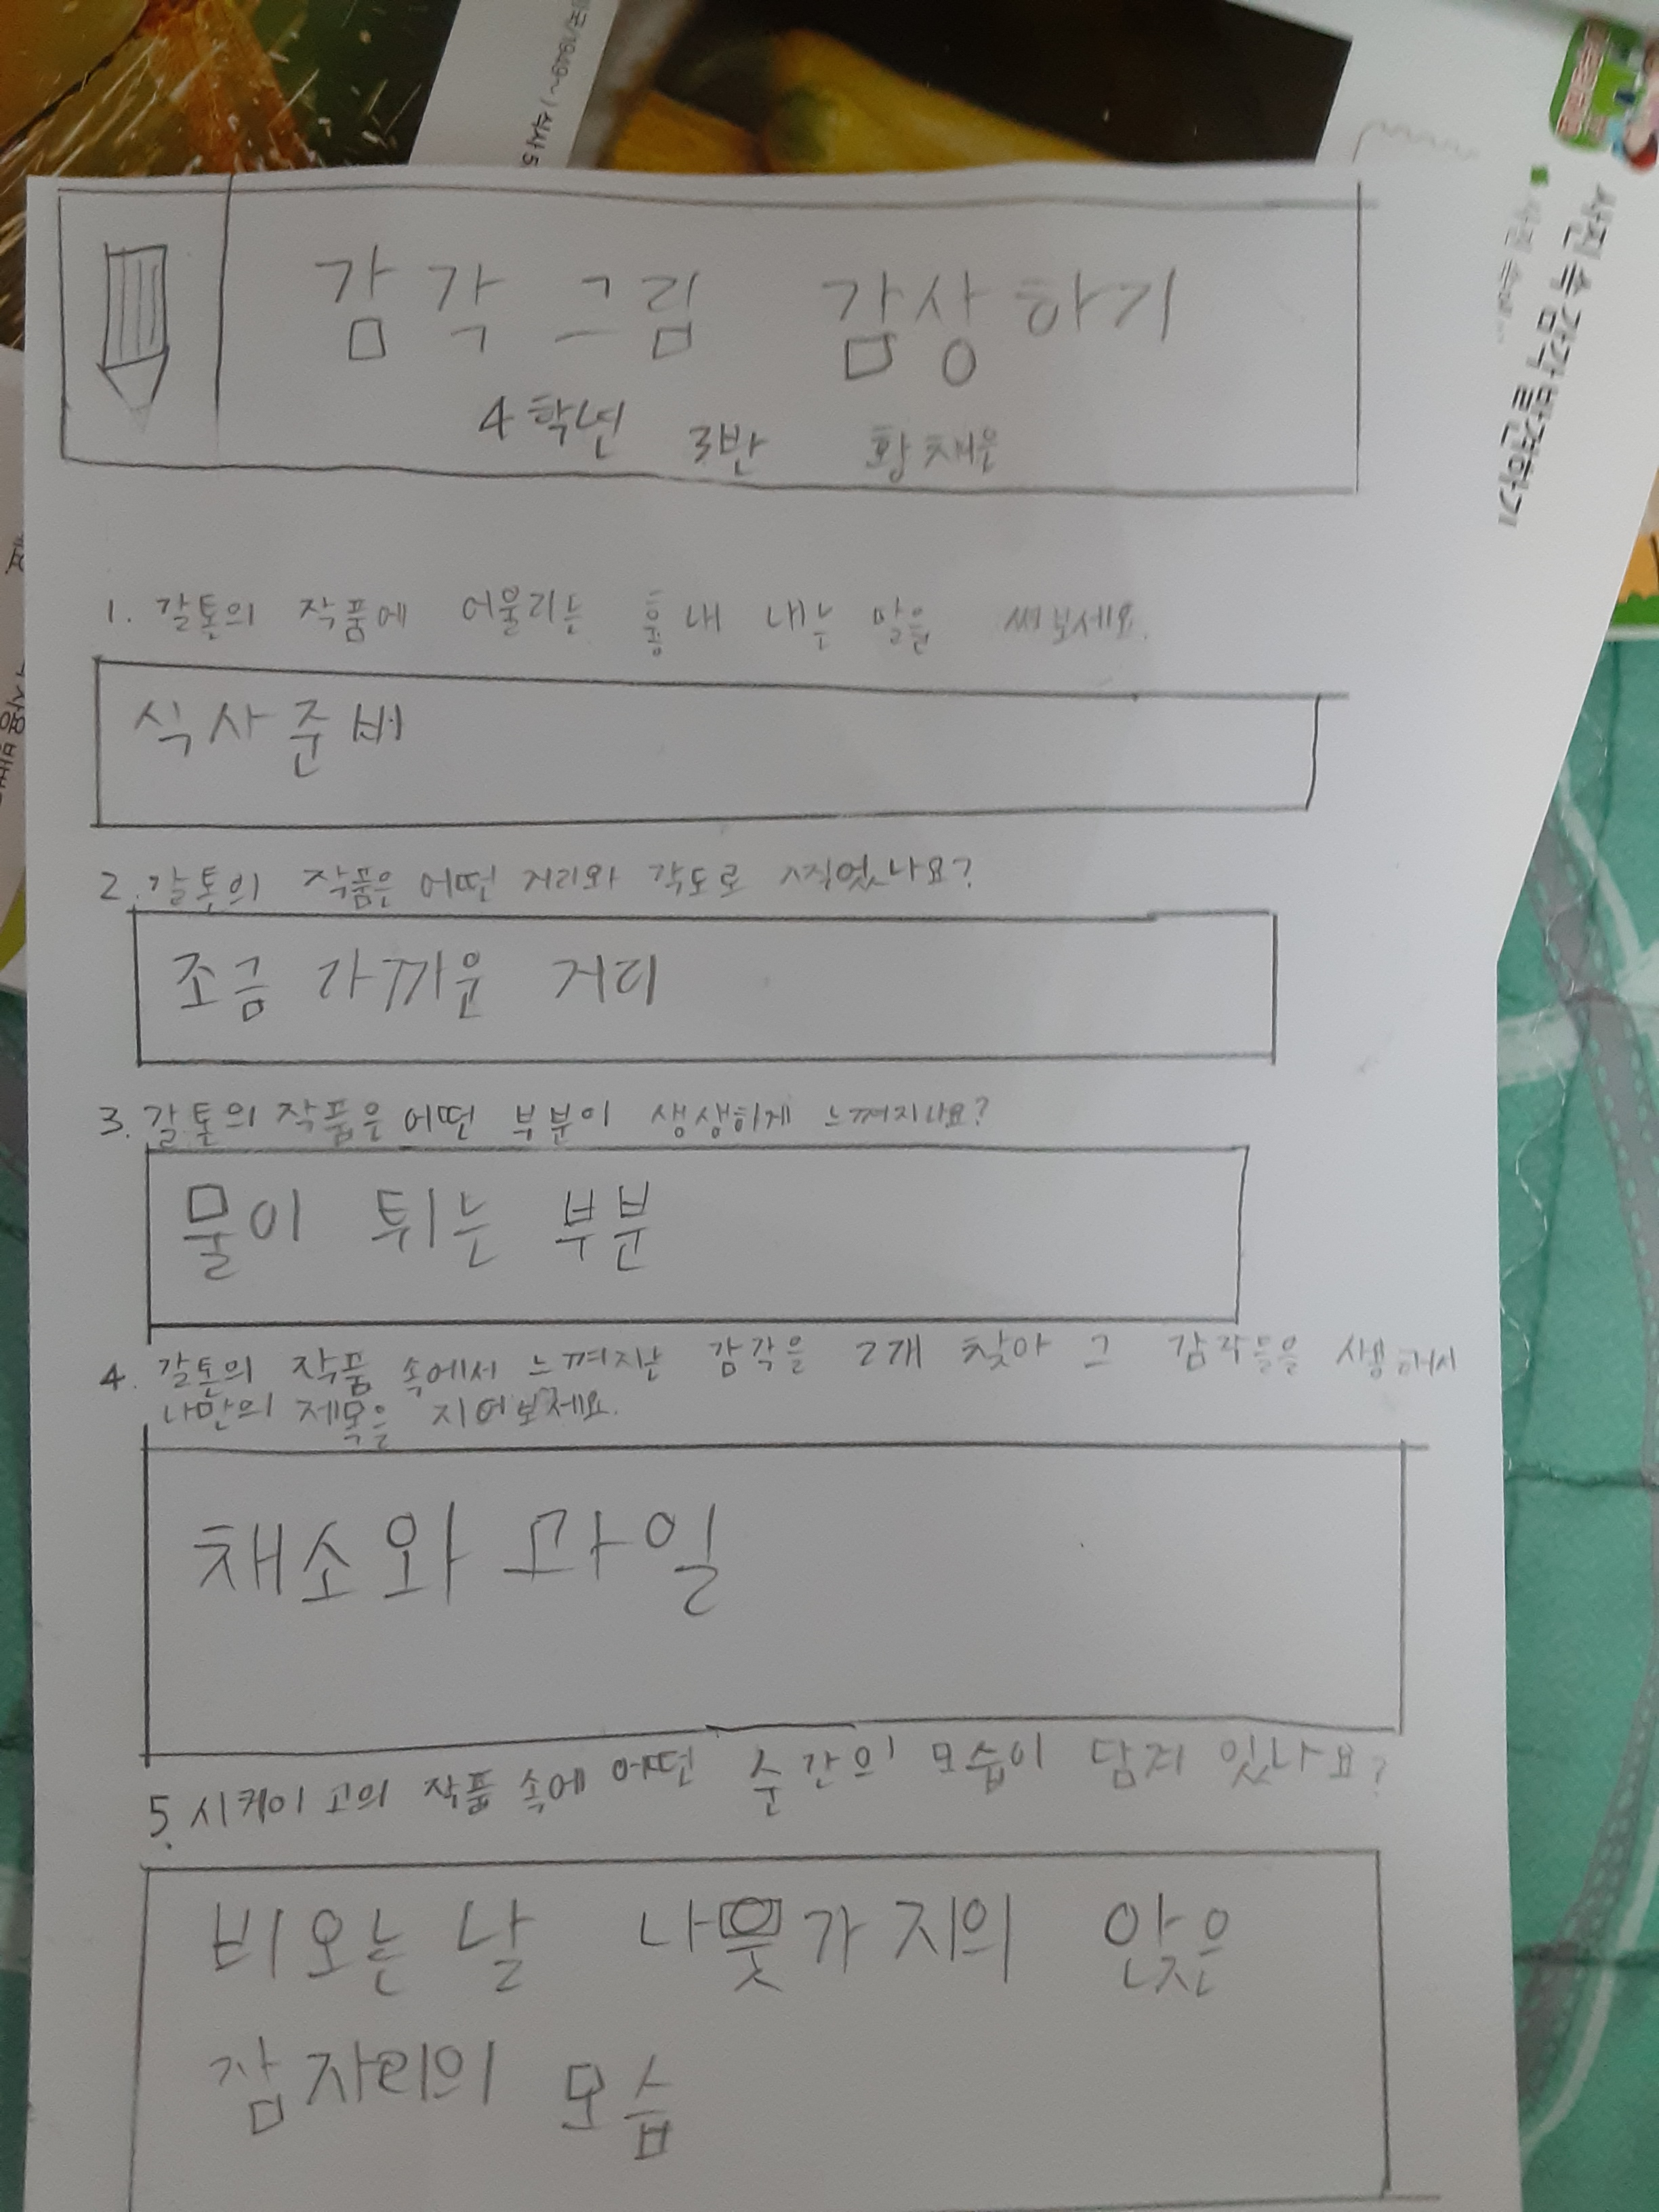 국/1949~) 식사 5
사진 속 감각 발견하기
감각 그림 감상하기
4학년 3반 황채운
1. 갈톤의 작품에 어울리는 흉내 내는 말을 써보세요.
식사준비
2. 갈톤의 작품은 어떤 거리와 각도로 찍었나요?
조금 가까운 거리
3. 갈톤의 작품은 어떤 부분이 생생하게 느껴지나요?
물이 튀는 부분
4. 갈톤의 작품 속에서 느껴지는 감각을 2개 찾아 그 감각들을 생각해서
나만의 제목은 지어보세요.
채소와 과일
5. 시케이 고의 작품 속에 어떤 순간의 모습이 담겨 있나요?
비오는 날 나뭇가지의 앉은
잠자리의 모습